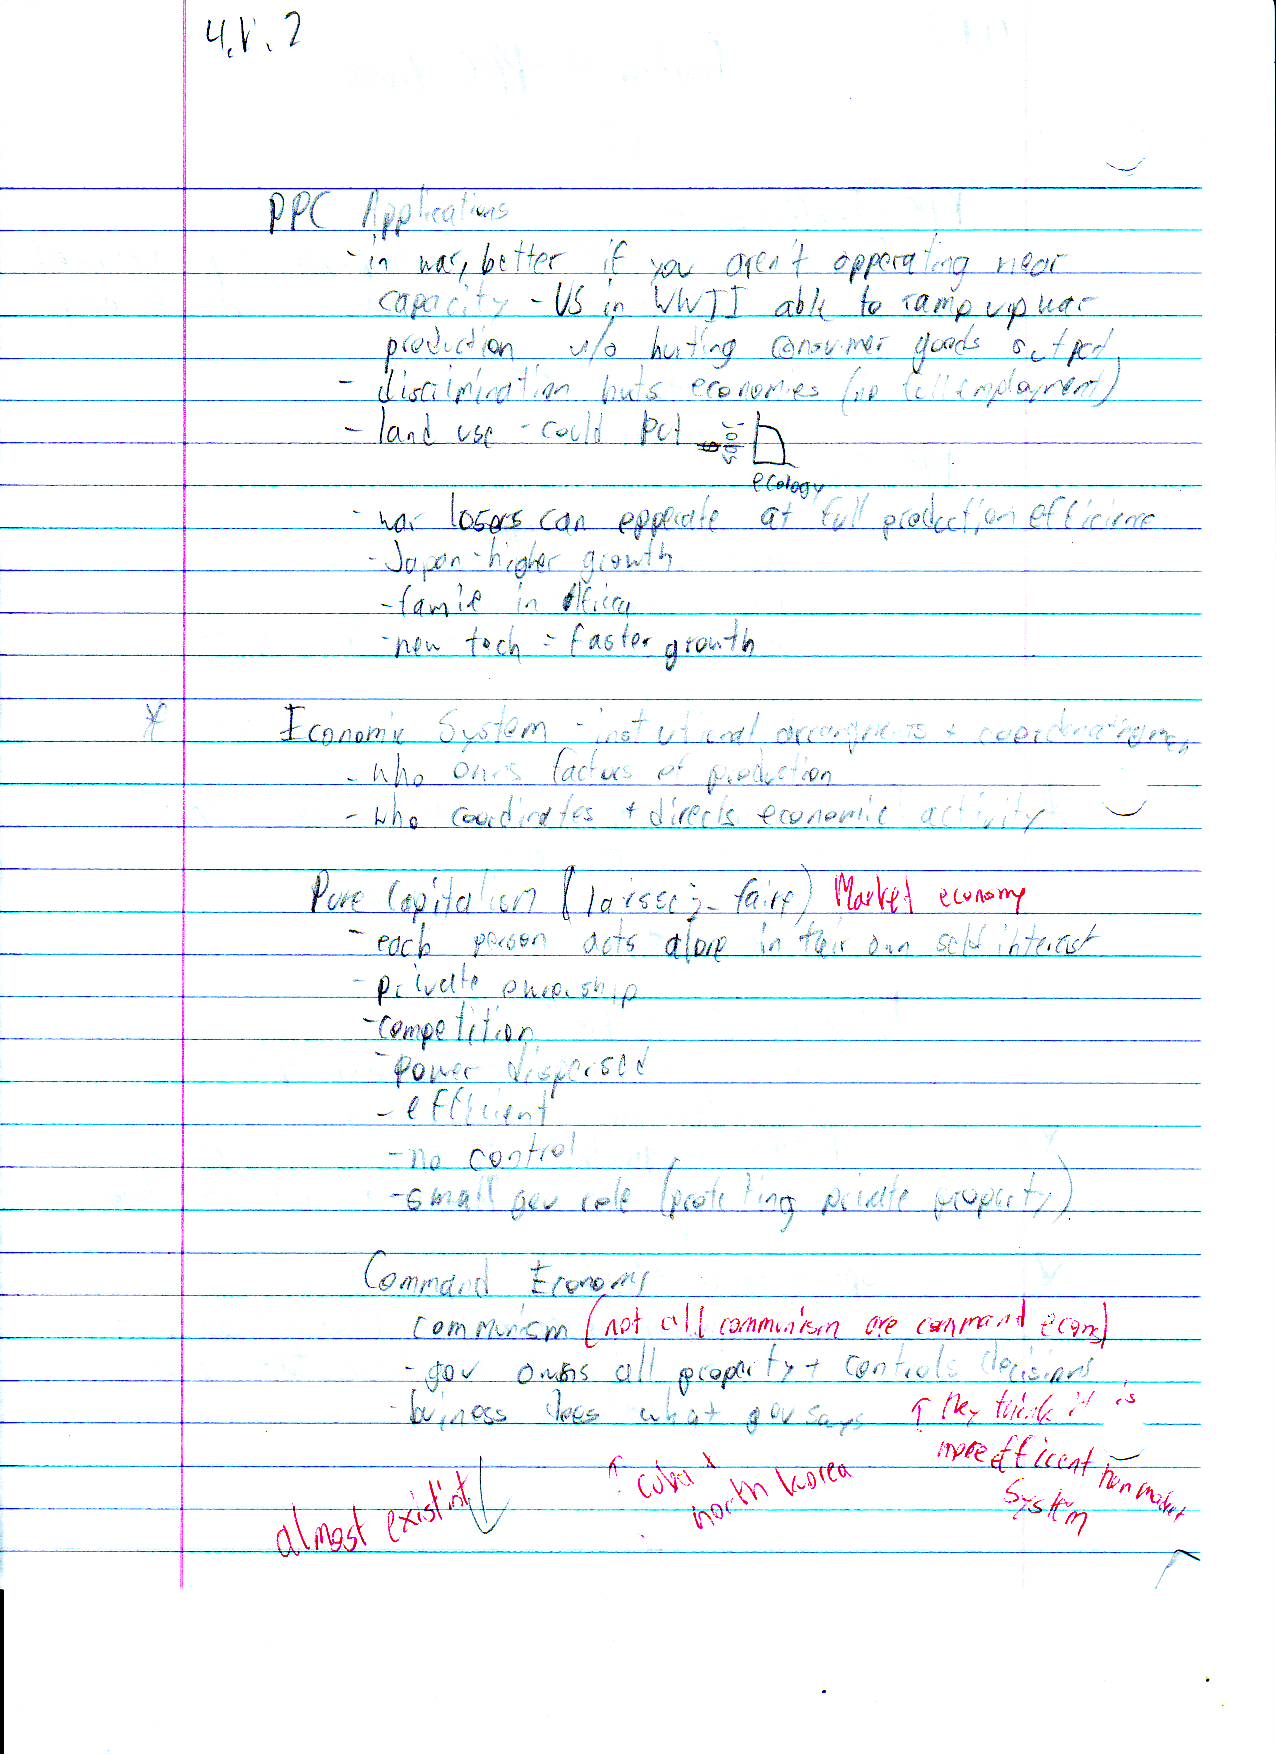 4.V.2
PPC Applications
- in war, better if you aren't opperating near
capacity - US in WWII able to ramp up war
production w/o hurting consumer goods output
- discrimination huts economies (no full employment)
- land use - could put
ecology
- war losers can epperate at full production efficience
- Japan - higher growth
- famie in Africa
- new tech = faster growth
* Economic System - instutional arrangments +
- who owns factors of production
- who coordinates + directs economic activity
Pure Capitalism (laissez-faire) Market economy
- each person acts alone in their own self interest
- private ownership
- competition
- power dispersed
- efficient
- no control
- small gov role (protecting private property)
Command Economy
communism (not all communism are command econs)
- gov owns all property + controls decisions
- buiness does what gov says ↑ they think it is
more efficient than market
system
↑ cuba +
north korea
almost existint ↓